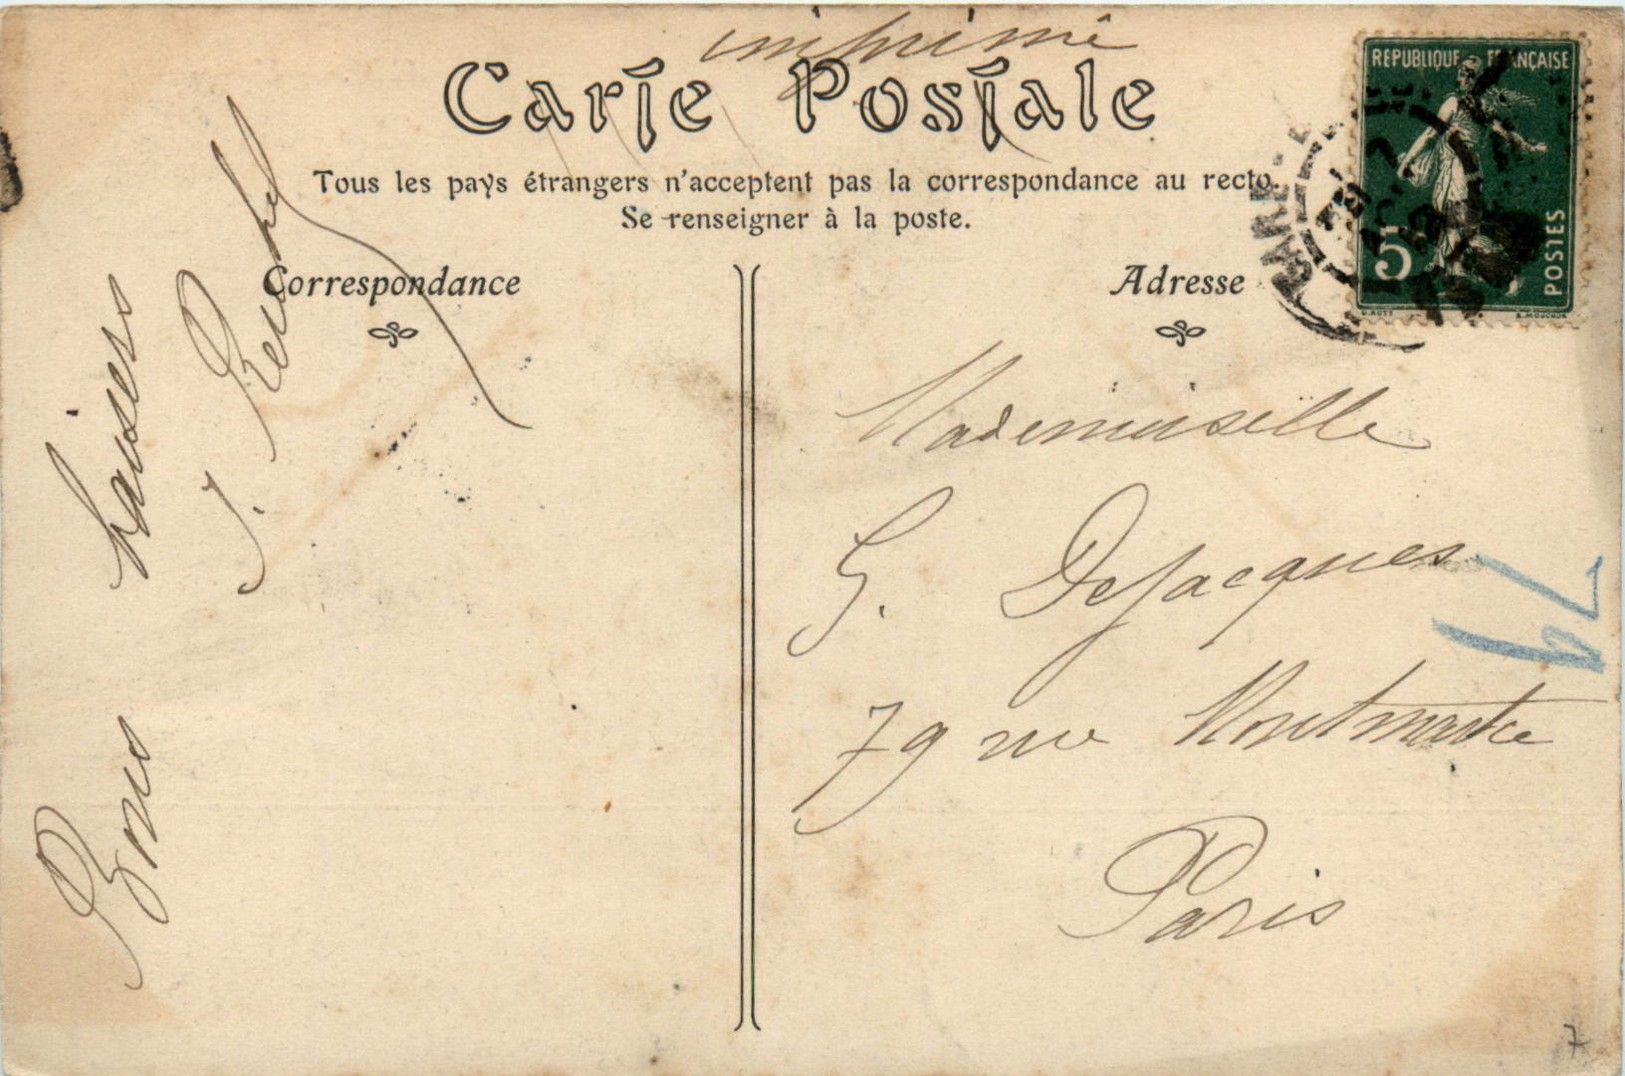 imprimé
Carte Postale
Tous les pays étrangers n'acceptent pas la correspondance au recto.
Se renseigner à la poste.
Correspondance
Adresse
Bons baisers
J.
Mademoiselle
G. DeJacques
79 rue Montmartre
Paris
79
7
REPUBLIQUE FRANÇAISE
5
POSTES
PARIS